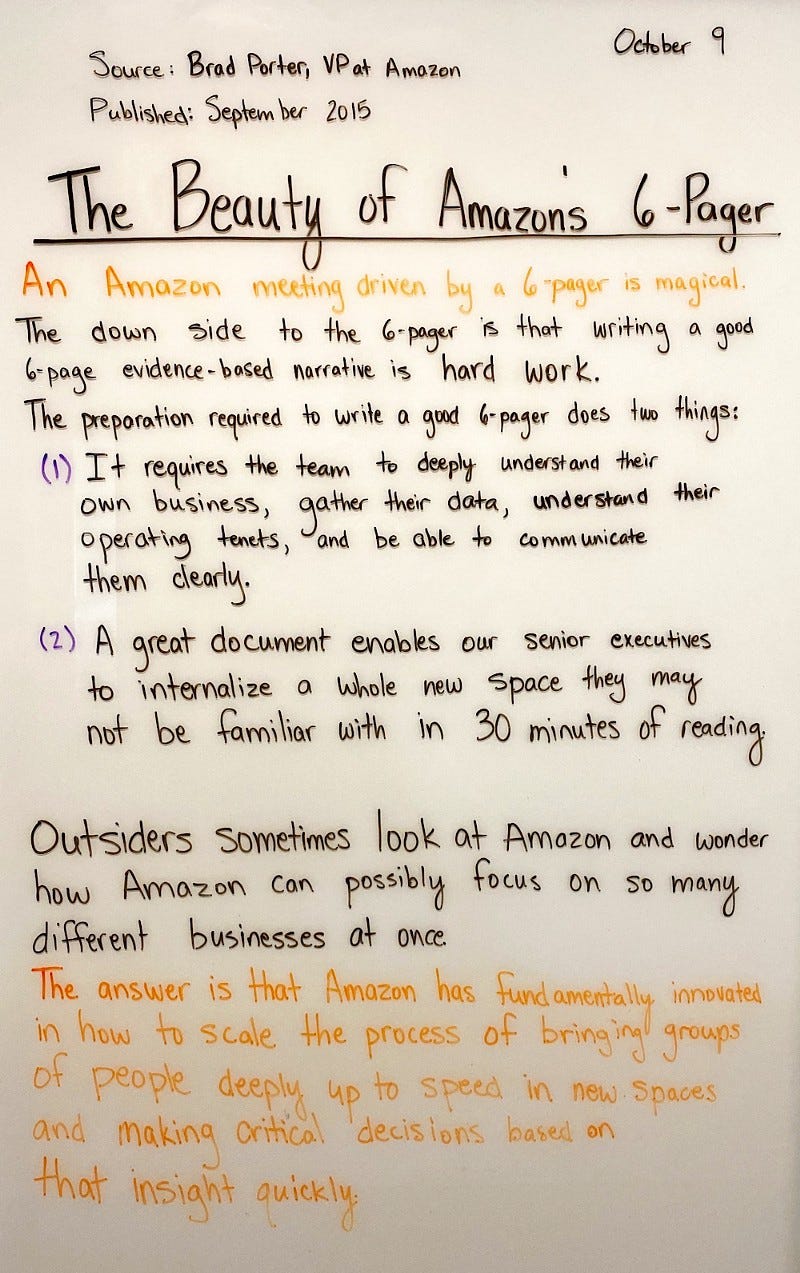 October 9
Source: Brad Porter, VP at Amazon
Published: September 2015
The Beauty of Amazon's 6-Pager
An Amazon meeting driven by a 6-pager is magical.
The down side to the 6-pager is that writing a good
6-page evidence-based narrative is hard work.
The preparation required to write a good 6-pager does two things:
(1) It requires the team to deeply understand their
own business, gather their data, understand their
operating tenets, and be able to communicate
them clearly.
(2) A great document enables our senior executives
to internalize a whole new space they may
not be familiar with in 30 minutes of reading.
Outsiders sometimes look at Amazon and wonder
how Amazon can possibly focus on so many
different businesses at once.
The answer is that Amazon has fundamentally innovated
in how to scale the process of bringing groups
of people deeply up to speed in new spaces
and making critical decisions based on
that insight quickly.